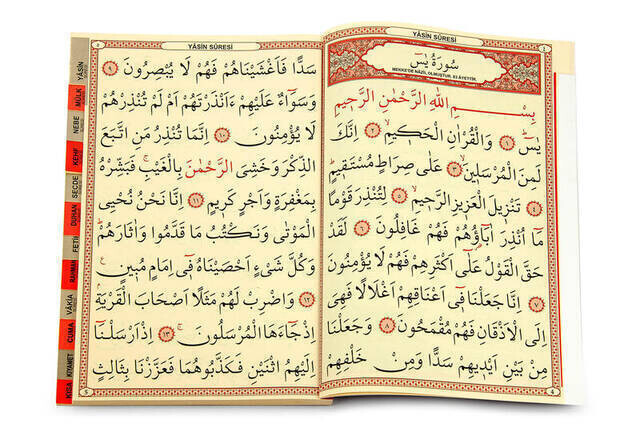 YÂSİN SÛRESİ
سُورَةُ يٰسٓ
MEKKE'DE NÂZİL OLMUŞTUR. 83 ÂYETTİR.
بِسْــــمِ اللّٰهِ الرَّحْمٰنِ الرَّحٖيمِ
يٰسٓ ﴿١﴾ وَالْقُرْاٰنِ الْحَكٖيمِ ﴿٢﴾ اِنَّكَ
لَمِنَ الْمُرْسَلٖينَ ﴿٣﴾ عَلٰى صِرَاطٍ مُسْتَقٖيمٍ
﴿٤﴾ تَنْزٖيلَ الْعَزٖيزِ الرَّحٖيمِ ﴿٥﴾ لِتُنْذِرَ قَوْمًا
مَٓا اُنْذِرَ اٰبَٓاؤُ۬هُمْ فَهُمْ غَافِلُونَ ﴿٦﴾ لَقَدْ
حَقَّ الْقَوْلُ عَلٰٓى اَكْثَرِهِمْ فَهُمْ لَا يُؤْمِنُونَ
﴿٧﴾ اِنَّا جَعَلْنَا فٖٓي اَعْنَاقِهِمْ اَغْلَالًا فَهِيَ
اِلَى الْاَذْقَانِ فَهُمْ مُقْمَحُونَ ﴿٨﴾ وَجَعَلْنَا
مِنْ بَيْنِ اَيْدٖيهِمْ سَدًّا وَمِنْ خَلْفِهِمْ
4
YÂSİN SÛRESİ
سَدًّا فَاَغْشَيْنَاهُمْ فَهُمْ لَا يُبْصِرُونَ ﴿٩﴾
وَسَوَٓاءٌ عَلَيْهِمْ ءَاَنْذَرْتَهُمْ اَمْ لَمْ تُنْذِرْهُمْ
لَا يُؤْمِنُونَ ﴿١٠﴾ اِنَّمَا تُنْذِرُ مَنِ اتَّبَعَ
الذِّكْرَ وَخَشِيَ الرَّحْمٰنَ بِالْغَيْبِۚ فَبَشِّرْهُ
بِمَغْفِرَةٍ وَاَجْرٍ كَرٖيمٍ ﴿١١﴾ اِنَّا نَحْنُ نُحْيِي
الْمَوْتٰى وَنَكْتُبُ مَا قَدَّمُوا وَاٰثَارَهُمْؕ
وَكُلَّ شَيْءٍ اَحْصَيْنَاهُ فٖٓي اِمَامٍ مُبٖينٍࣖ
﴿١٢﴾ وَاضْرِبْ لَهُمْ مَثَلًا اَصْحَابَ الْقَرْيَةِۘ
اِذْ جَٓاءَهَا الْمُرْسَلُونَۚ ﴿١٣﴾ اِذْ اَرْسَلْنَٓا
اِلَيْهِمُ اثْنَيْنِ فَكَذَّبُوهُمَا فَعَزَّزْنَا بِثَالِثٍ
5
YÂSİN
MÜLK
NEBE
KEHF
SECDE
DUHAN
FETİH
RAHMAN
VÂKIA
CUMA
KIYAMET
KISA